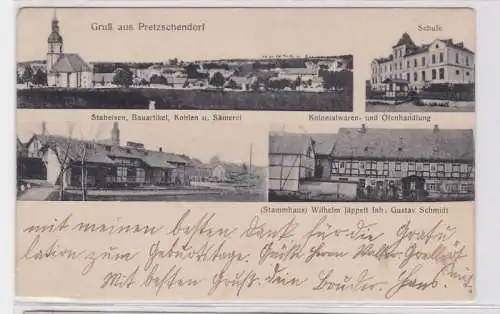 Gruß aus Pretzschendorf
Schule
Stabeisen, Bauartikel, Kohlen u. Sämerei
Kolonialwaren- und Ofenhandlung
(Stammhaus) Wilhelm Jäppelt Inh. Gustav Schmidt
mit meinen besten Dank für die Gratu
lation zum Geburtstage. Grüße Herrn
Mit besten Gruß. dein Bruder. Hans.